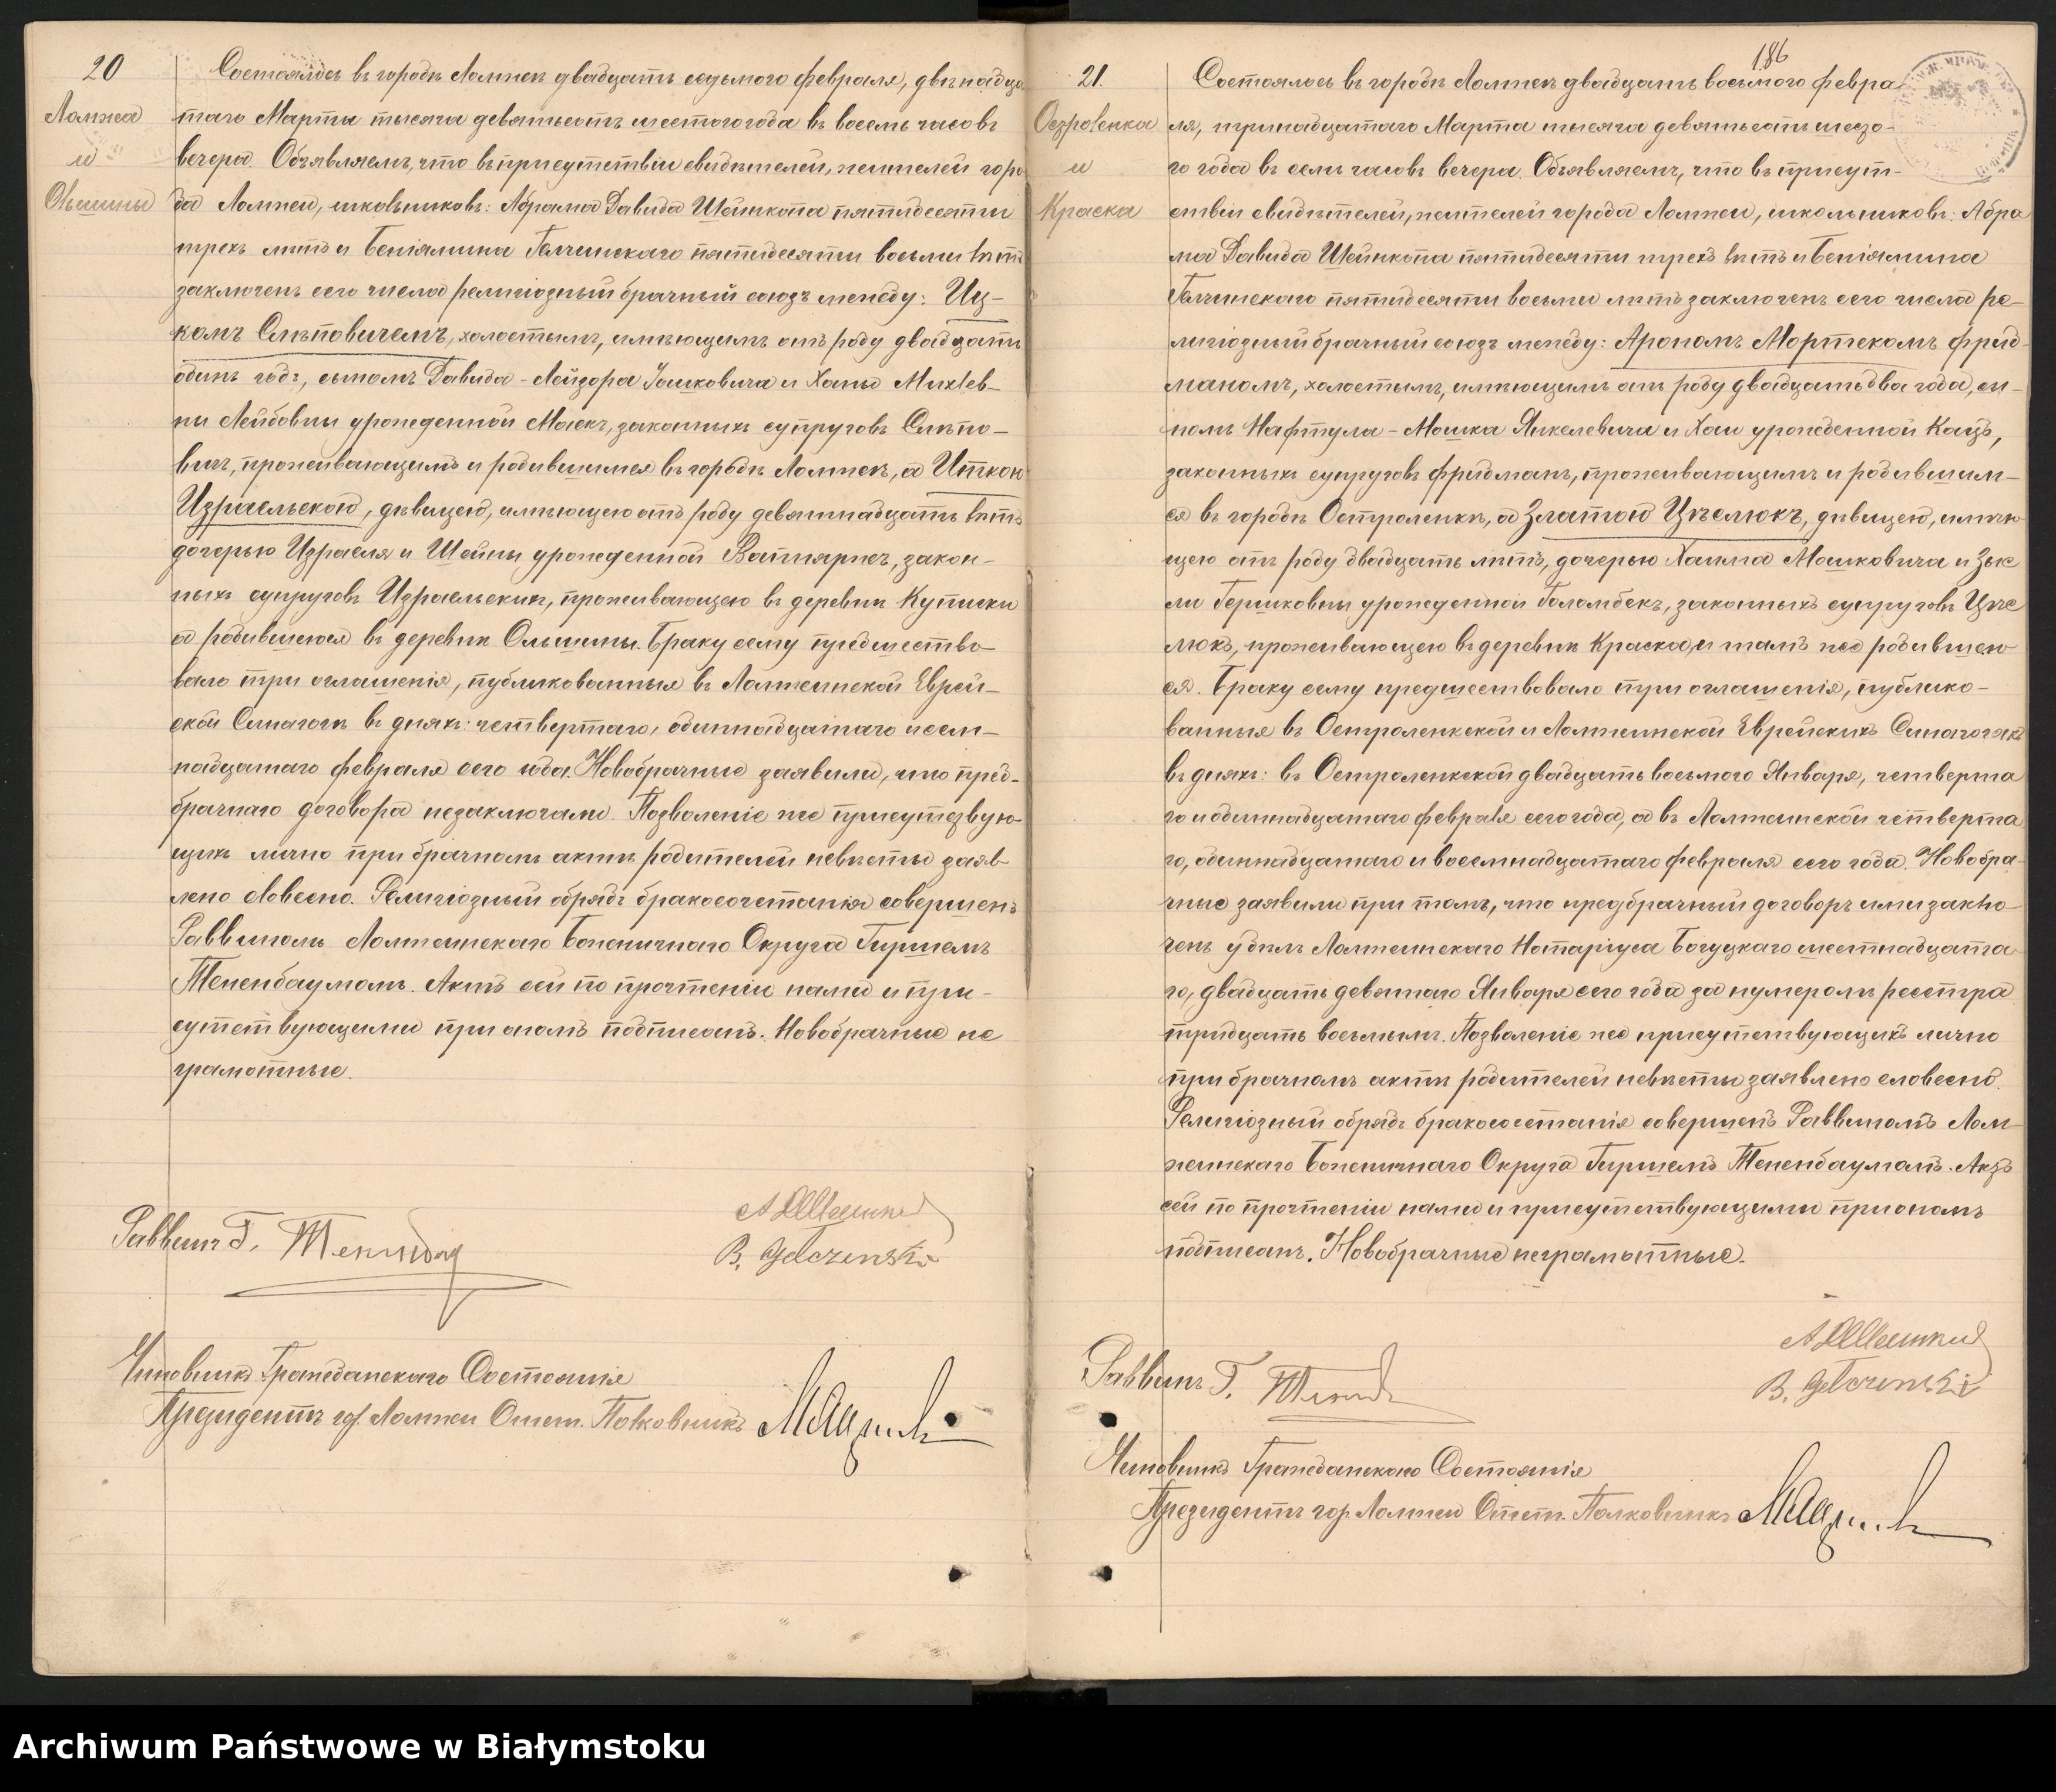 20
Ломжа
и
Ольшины
Состоялось въ городѣ Ломжѣ двадцать седьмого февраля, двѣнадца
таго Марта тысяча девятьсотъ шестого года въ восемь часовъ
вечера. Объявляемъ, что въ присутствіи свидѣтелей, жителей горо
да Ломжи, школьниковъ: Абрама Давида Шейнкопа пятидесяти
трехъ лѣтъ и Беніямина Гельчинскаго пятидесяти восьми лѣтъ
заключенъ сего числа религіозный брачный союзъ между: Иц-
комъ Слѣповичемъ, холостымъ, имѣющимъ отъ роду двадцать
одинъ годъ, сыномъ Давида-Лейзора Іошковича и Ханы Михлев-
ны Лейбовны урожденной Маекъ, законныхъ супруговъ Слѣпо-
вичъ, проживающимъ и родившимся въ городѣ Ломжѣ, а Иткою
Израельскою, дѣвицею, имѣющею отъ роду девятнадцать лѣтъ
дочерью Израеля и Шейны урожденной Ватняржъ, закон-
ныхъ супруговъ Израельскихъ, проживающею въ деревнѣ Куписки
а родившеюся въ деревнѣ Ольшины. Браку сему предшество-
вало три оглашенія, публикованныя въ Ломжинской Еврей-
ской Синагогѣ въ дняхъ: четвертаго, одиннадцатаго и восем-
надцатаго февраля сего года. Новобрачные заявили, что пред-
брачнаго договора незаключали. Позволеніе же присутствую-
щихъ лично при брачномъ актѣ родителей невѣсты заяв-
лено словесно. Религіозный обрядъ бракосочетанія совершенъ
Раввиномъ Ломжинскаго Божничнаго Округа Гиршемъ
Тененбаумомъ. Актъ сей по прочтеніи нами и при-
сутствующими при ономъ подписанъ. Новобрачные не
грамотные.
Раввинъ Г. Тененбаум
А Д Шейнкоп
B. Gelczenski
Чиновникъ Гражданскаго Состоянія
Президентъ гор. Ломжи Отст. Полковникъ
186
21.
Остроленка
и
Краска
Состоялось въ городѣ Ломжѣ двадцать восьмого февра
ля, тринадцатаго Марта тысяча девятьсотъ шесто-
го года въ семь часовъ вечера. Объявляемъ, что въ присут-
ствіи свидѣтелей, жителей города Ломжи, школьниковъ: Абра
ма Давида Шейнкопа пятидесяти трехъ лѣтъ и Беніямина
Гельчинскаго пятидесяти восьми лѣтъ заключенъ сего числа ре-
лигіозный брачный союзъ между: Арономъ Мортекомъ Фрид-
маномъ, холостымъ, имѣющимъ отъ роду двадцать два года, сы-
номъ Нафтула-Мошка Янкелевича и Хаи урожденной Кацъ,
законныхъ супруговъ Фридманъ, проживающимъ и родившим-
ся въ городѣ Остроленкѣ, а Златою Цѣселюкъ, дѣвицею, имѣю
щею отъ роду двадцать лѣтъ, дочерью Хаима Мошковича и Зыс
ли Гершковны урожденной Голомбекъ, законныхъ супруговъ Цѣсе
люкъ, проживающею въ деревнѣ Краска, и тамъ же родившею
ся. Браку сему предшествовало три оглашенія,ublико-
ванныя въ Остроленкской и Ломжинской Еврейскихъ Синагогахъ
въ дняхъ: въ Остроленкской двадцать восьмого Января, четверта
го и одиннадцатаго февраля сего года, а въ Ломжинской четверта
го, одиннадцатаго и восемнадцатаго февраля сего года. Новобра-
чные заявили при томъ, что предбрачный договоръ ими заклю-
ченъ у дѣлъ Ломжинскаго Нотаріуса Богуцкаго шестнадцата
го, двадцать девятаго Января сего года за нумеромъ реестра
тридцать восьмымъ. Позволеніе же присутствующихъ лично
при брачномъ актѣ родителей невѣсты заявлено словесно.
Религіозный обрядъ бракосочетанія совершенъ Раввиномъ Лом-
жинскаго Божничнаго Округа Гиршемъ Тененбаумомъ. Актъ
сей по прочтеніи нами и присутствующими при ономъ
подписанъ. Новобрачные неграмотные.
А Д Шейнкоп
B. Gelczenski
Раввинъ Г. Тененб
Чиновникъ Гражданскаго Состоянія
Президентъ гор Ломжи Отст. Полковникъ
Archiwum Państwowe w Białymstoku